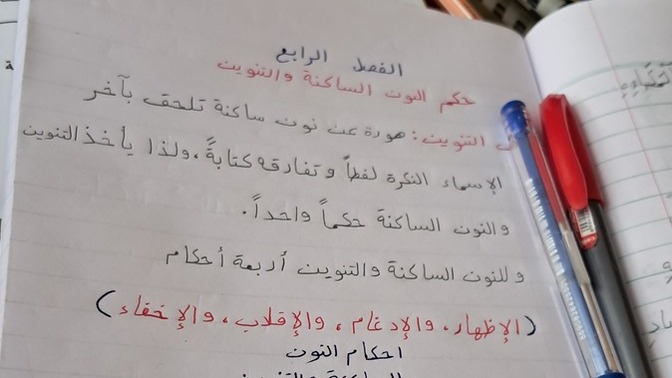 الفصل الرابع
حكم النون الساكنة والتنوين
التنوين: هورة عن نون ساكنة تلحق بآخر
الإسماء النكرة لفظاً وتفارقه كتابةً، ولذا يأخذ التنوين
والنون الساكنة حكماً واحداً.
وللنون الساكنة والتنوين أربعة أحكام
(الإظهار، والإدغام، والإقلاب، والإخفاء)
احكام النون